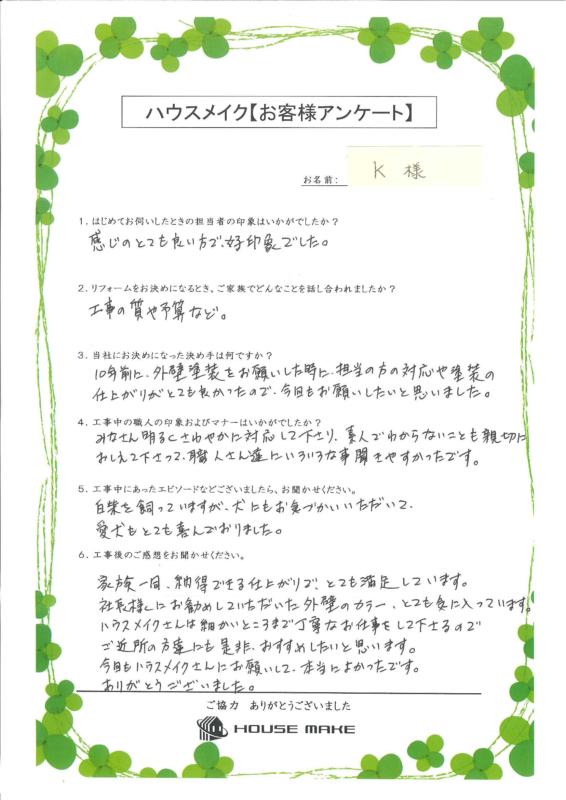 ハウスメイク【お客様アンケート】
お名前： K 様
1．はじめてお伺いしたときの担当者の印象はいかがでしたか？
感じのとても良い方で、好印象でした。
2．リフォームをお決めになるとき、ご家族でどんなことを話し合われましたか？
工事の質や予算など。
3．当社にお決めになった決め手は何ですか？
10年前に、外壁塗装をお願いした時に、担当の方の対応や塗装の
仕上がりがとても良かったので、今回もお願いしたいと思いました。
4．工事中の職人の印象およびマナーはいかがでしたか？
みなさん明るくさわやかに対応して下さり、素人でわからないことも親切に
おしえて下さって、職人さん達にいろいろな事聞きやすかったです。
5．工事中にあったエピソードなどございましたら、お聞かせください。
白柴を飼っていますが、犬にもお気づかいいただいて、
愛犬もとても喜んでおりました。
6．工事後のご感想をお聞かせください。
家族一同、納得できる仕上がりで、とても満足しています。
社長様にお勧めしていただいた外壁のカラー、とても気に入っています。
ハウスメイクさんは細かいところまで丁寧なお仕事をして下さるので
ご近所の方達にも是非、おすすめしたいと思います。
今回もハウスメイクさんにお願いして、本当によかったです。
ありがとうございました。
ご協力 ありがとうございました
HOUSE MAKE